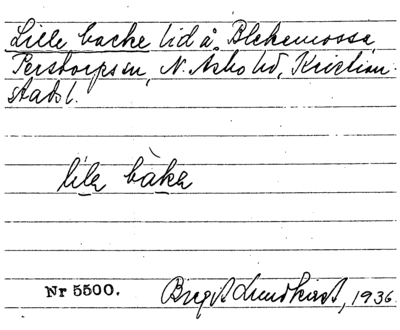 Lille backe lid å Blekemossa
Perstorps sn, N. Åsbo hd, Kristian-
stads l.
lile bàka
Nr 5500.
Birgit Lundkvist, 1936.